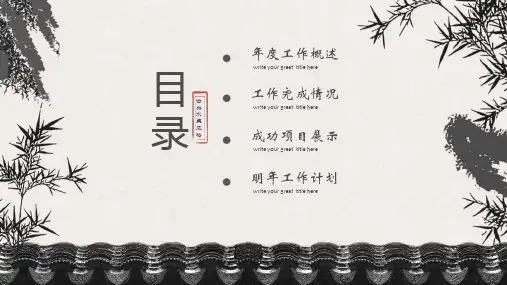 目录
年度工作概述
write your great title here
工作完成情况
write your great title here
成功项目展示
write your great title here
明年工作计划
write your great title here